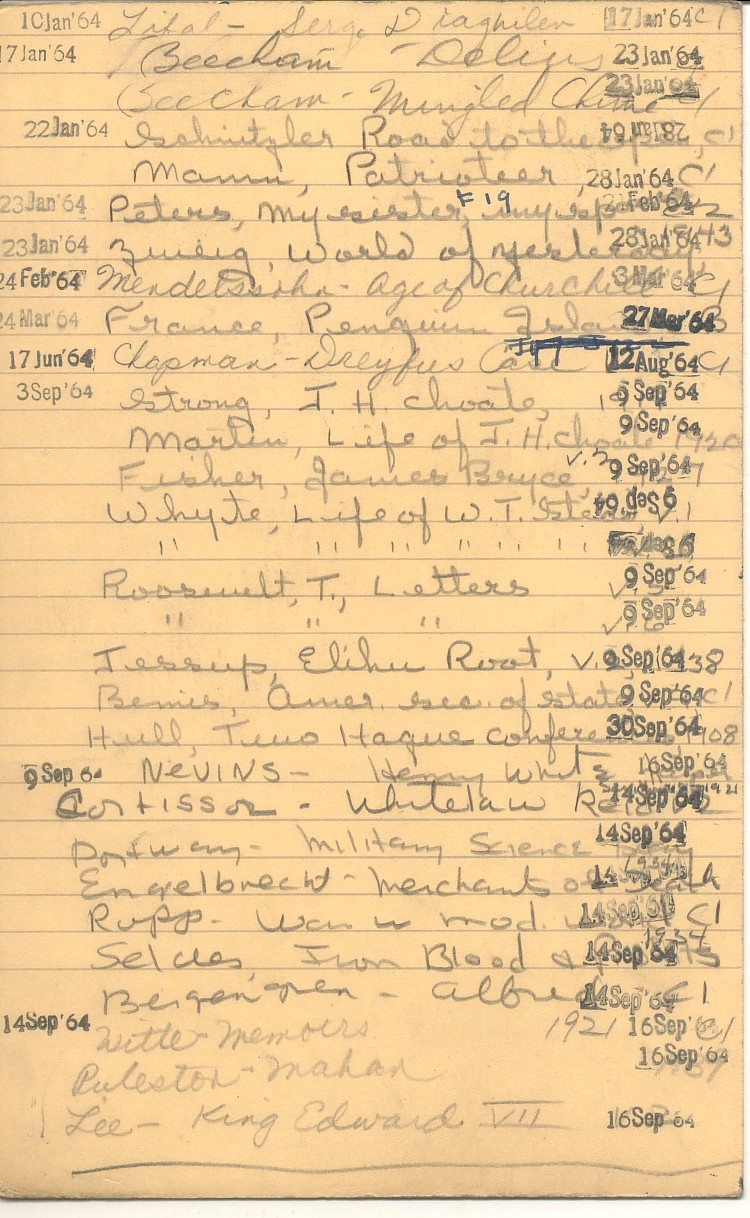 10Jan'64 Lifar - Serge Diaghilev 17Jan'64 C1
17Jan'64 Beecham Delius 23Jan'64
Beecham - Mingled Chime 23Jan'64 C1
22Jan'64 Schnitzler Road to the open, C1 28Jan'64
Mann, Patrioteer, 28Jan'64 C1
23Jan'64 Peters, My sister, my sp Feb'64
F19
23Jan'64 Zweig, World of yesterday, 28Jan'64 1943
24Feb'64 Mendelssohn - Age of Churchill 3Mar'64 C1
24Mar'64 France, Penguin Island 27Mar'64
17Jun'64 Chapman - Dreyfus Case 12Aug'64 C1
3Sep'64 Strong, J. H. Choate, 9Sep'64
Martin, Life of J. H. Choate 1920 9Sep'64
Fisher, James Bryce, v.2 9Sep'64
Whyte, Life of W. T. Stead, v.1 9Sep'64
" " " " " " 9Sep'64
Roosevelt, T., Letters v.5 9Sep'64
" " " v.6 9Sep'64
Jessup, Elihu Root, v.2, 1938 9Sep'64
Bemis, Amer. sec. of state, C1 9Sep'64
Hull, Two Hague conferences 1908 30Sep'64
9Sep'64 NEVINS - Henry White 16Sep'64
Cortissoz - Whitelaw Reid 1921 v2 14Sep'64
Portway - Military Science 14Sep'64
Engelbrecht - Merchants of Death 1934 14Sep'64
Rupp - War in mod. C1 14Sep'64
Seldes, Iron Blood & Profits 1934 14Sep'64
Bergengren - Alfred C1 14Sep'64
14Sep'64 Witte - Memoirs 1921 16Sep'64 C1
Puleston - Mahan 16Sep'64
Lee - King Edward VII 16Sep'64